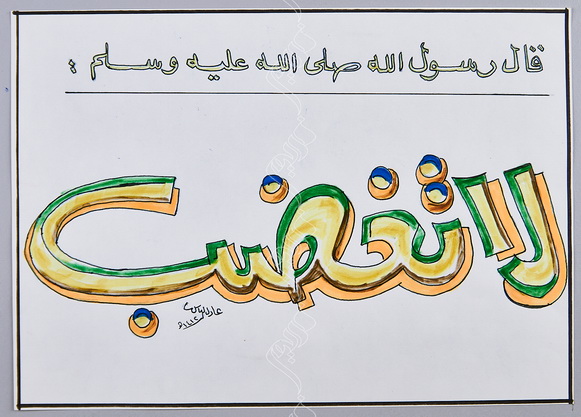 قال رسول الله صلى الله عليه وسلم :
لا تغضب